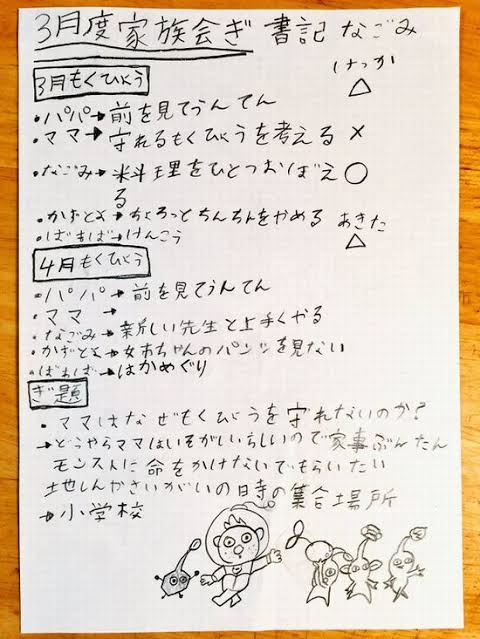 3月度家族会ぎ 書記 なごみ
けっか
3月もくひょう
・パパ→前を見てうんてん △
・ママ→守れるもくひょうを考える ×
・なごみ→料理をひとつおぼえ ○
る
・かずとよ→ちょろっとちんちんをやめる あきた
・ばあば→けんこう △
4月もくひょう
・パパ→前を見てうんてん
・ママ→
・なごみ→新しい先生と上手くやる
・かずとよ→姉ちゃんのパンツを見ない
・ばあば→はかめぐり
ぎ題
・ママはなぜもくひょうを守れないのか?
→どうやらママはいそがしいらしいので家事ぶんたん
モンストに命をかけないでもらいたい
地しんかさいがいの時の集合場所
→小学校